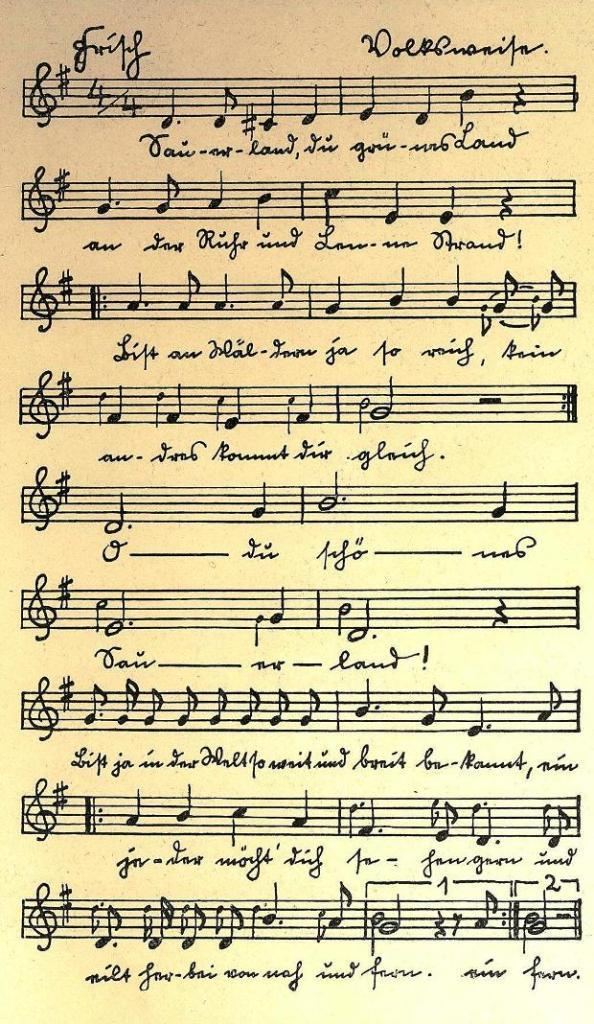 Frisch Volksweise.
4/4
Sau-er-land, du grü-nes Land
an der Ruhr und Len-ne Strand!
Bist an Wäl-dern ja so reich, kein
an-dres kommt dir gleich.
O — du schö — nes
Sau — er — land!
Bist ja in der Welt so weit und breit be-kannt, ein
je-der möcht' dich se- hen gern und
1 2
eilt her-bei von nah und fern. ein fern.